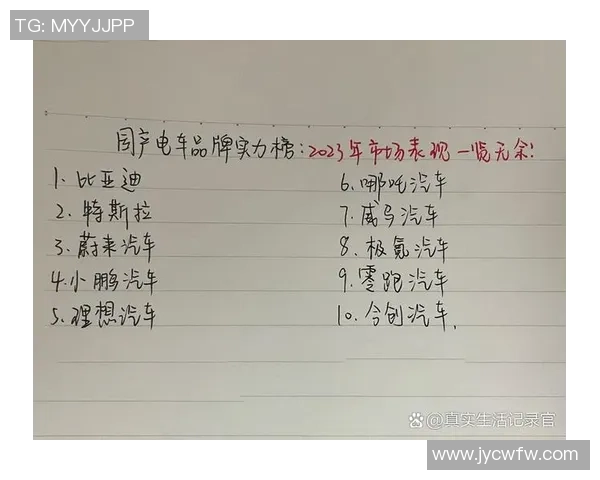 TG: MYYJJPP
国产电车品牌实力榜:2023年市场表现一览无余!
1. 比亚迪
2. 特斯拉
3. 蔚来汽车
4. 小鹏汽车
5. 理想汽车
6. 哪吒汽车
7. 威马汽车
8. 极氪汽车
9. 零跑汽车
10. 今创汽车.
@真实生活记录官
www.jycwfw.com